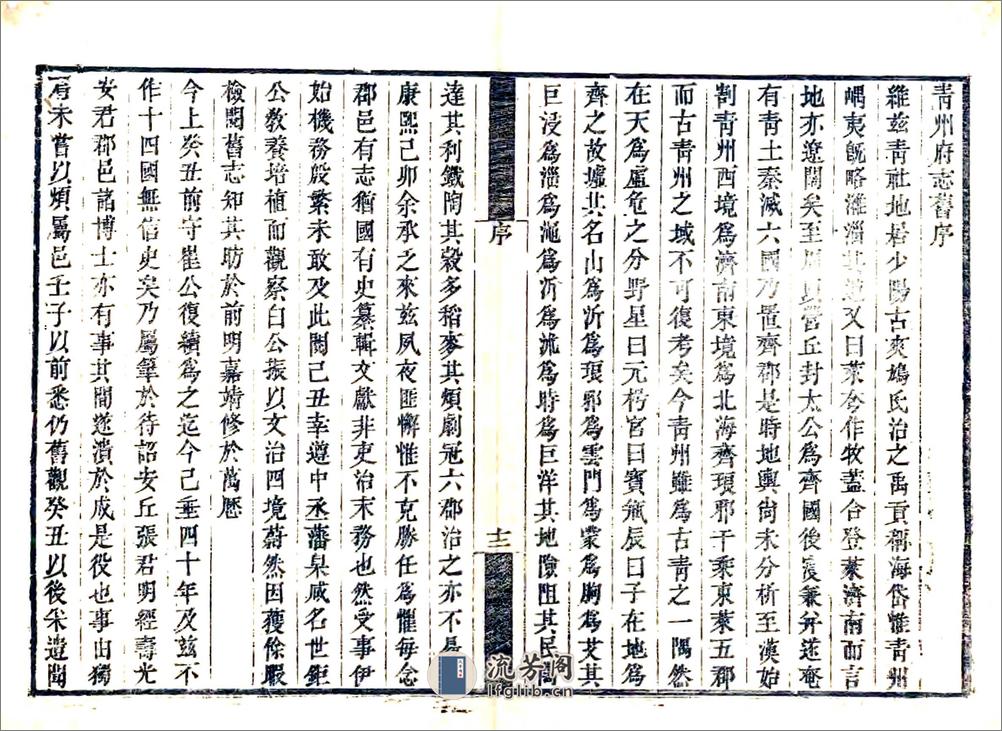 青州府志舊序
維茲青社地居少陽古爽鳩氏治之禹貢稱海岱惟青州
嵎夷既略濰淄其道又曰萊夷作牧蓋合登萊濟南而言
地亦遼闊矣至周以營丘封太公為齊國後復兼并遂奄
有青土秦滅六國乃置齊郡是時地輿尚未分析至漢始
割青州西境為濟南東境為北海齊琅邪千乘東萊五郡
而古青州之域不可復考矣今青州雖為古青之一隅然
在天為虛危之分野星曰元枵宮曰寶瓶辰曰子在地為
齊之故墟其名山為沂為琅邪為雲門為蒙為朐為艾其
巨浸為淄為澠為沂為洸為時為巨洋其地險阻其民闊
序
十二
達其利鐵陶其穀多稻麥其煩劇冠六郡治之亦不易
康熙己卯余承之來茲夙夜匪懈惟不克勝任為懼每念
郡邑有志猶國有史纂輯文獻非吏治末務也然受事伊
始機務殷繁未敢及此閱己丑幸遵中丞藩臬咸名世鉅
公教養培植而觀察白公振以文治四境蔚然因獲餘暇
檢閱舊志知其昉於前明嘉靖修於萬歷
今上癸丑前守崔公復續為之迄今己垂四十年及茲不
作十四國無信史矣乃屬筆於待詔安丘張君明經壽光
安君郡邑諸博士亦有事其間遂潰於成是役也事由獨
未嘗以煩屬邑壬子以前悉仍舊觀癸丑以後采遺聞
流芳閣
lfglib.cn